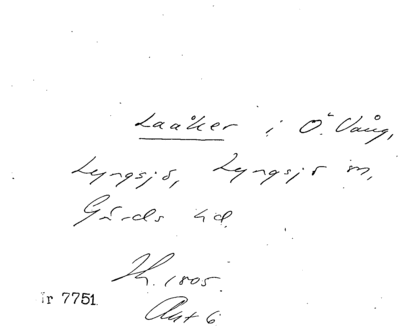 Laåker i Ö. Vång,
Lyngsjö, Lyngsjö m,
Gärds hd.
Sk. 1805.
Akt 6
Nr 7751